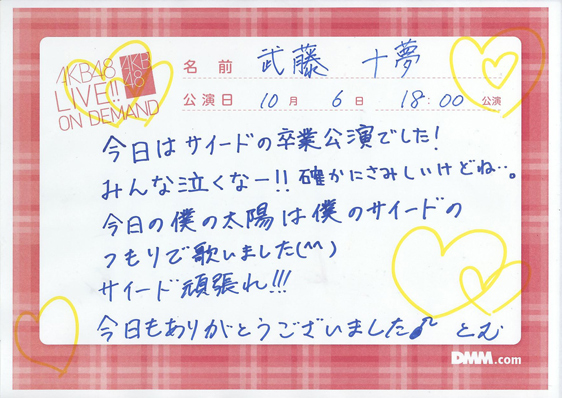 AKB48
LIVE!!
ON DEMAND
AKB
48
名前 武藤 十夢
公演日 10月 6日 18:00 公演
今日はサイードの卒業公演でした!
みんな泣くなー!! 確かにさみしいけどね…。
今日の僕の太陽は僕のサイードの
つもりで歌いました(^^)
サイード頑張れ!!!
今日もありがとうございました♪ とむ
DMM.com